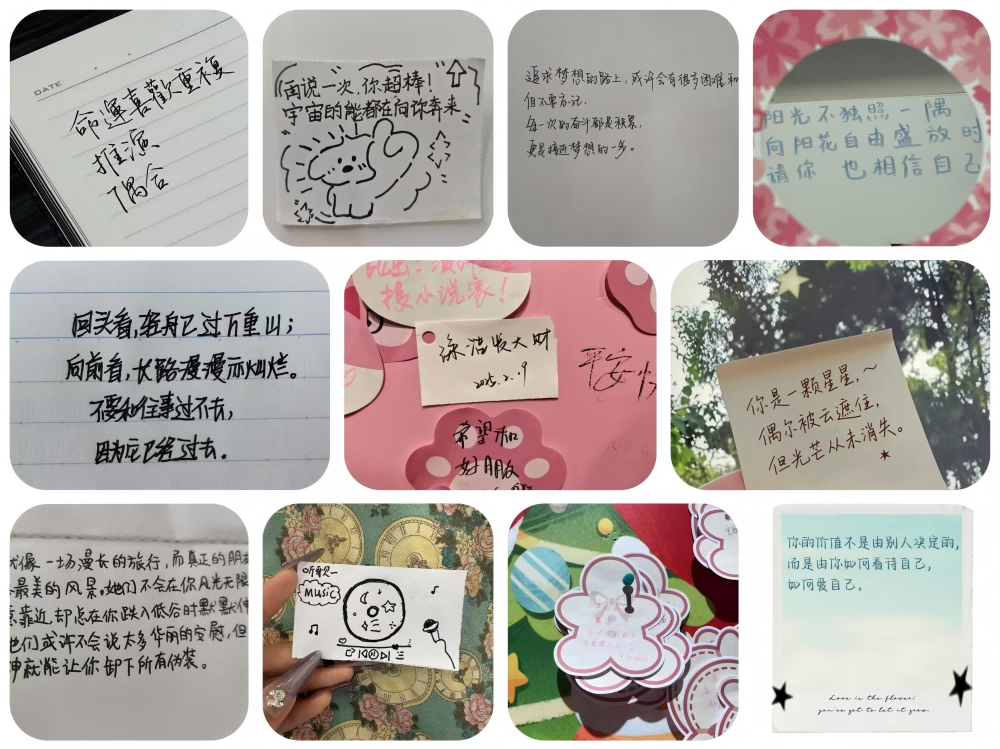 DATE
命運喜歡重複
推演
偶合
再说一次,你超棒!
宇宙的能都在向你奔来
追求梦想的路上,或许会有很多困难和
但不要忘记,
每一次的奋斗都是积累,
更是接近梦想的一步。
阳光不独照一隅
向阳花自由盛放时
请你 也相信自己
回头看,轻舟已过万重山;
向前看,长路漫漫亦灿烂。
不要和往事过不去,
因为它已经过去。
接小说家!
涂浩发大财
2025.2.9
平安
希望和
好朋友
你是一颗星星,~
偶尔被云遮住,
但光芒从未消失。
就像一场漫长的旅行,而真正的朋友
最美的风景。她们不会在你风光无限
靠近,却总在你跌入低谷时默默伸
她们或许不会说太多华丽的安慰,但
神就能让你卸下所有伪装。
听歌~
MUSIC
你的价值不是由别人决定的,
而是由你如何看待自己,
如何爱自己。
Love is the flower
you've got to let it grow